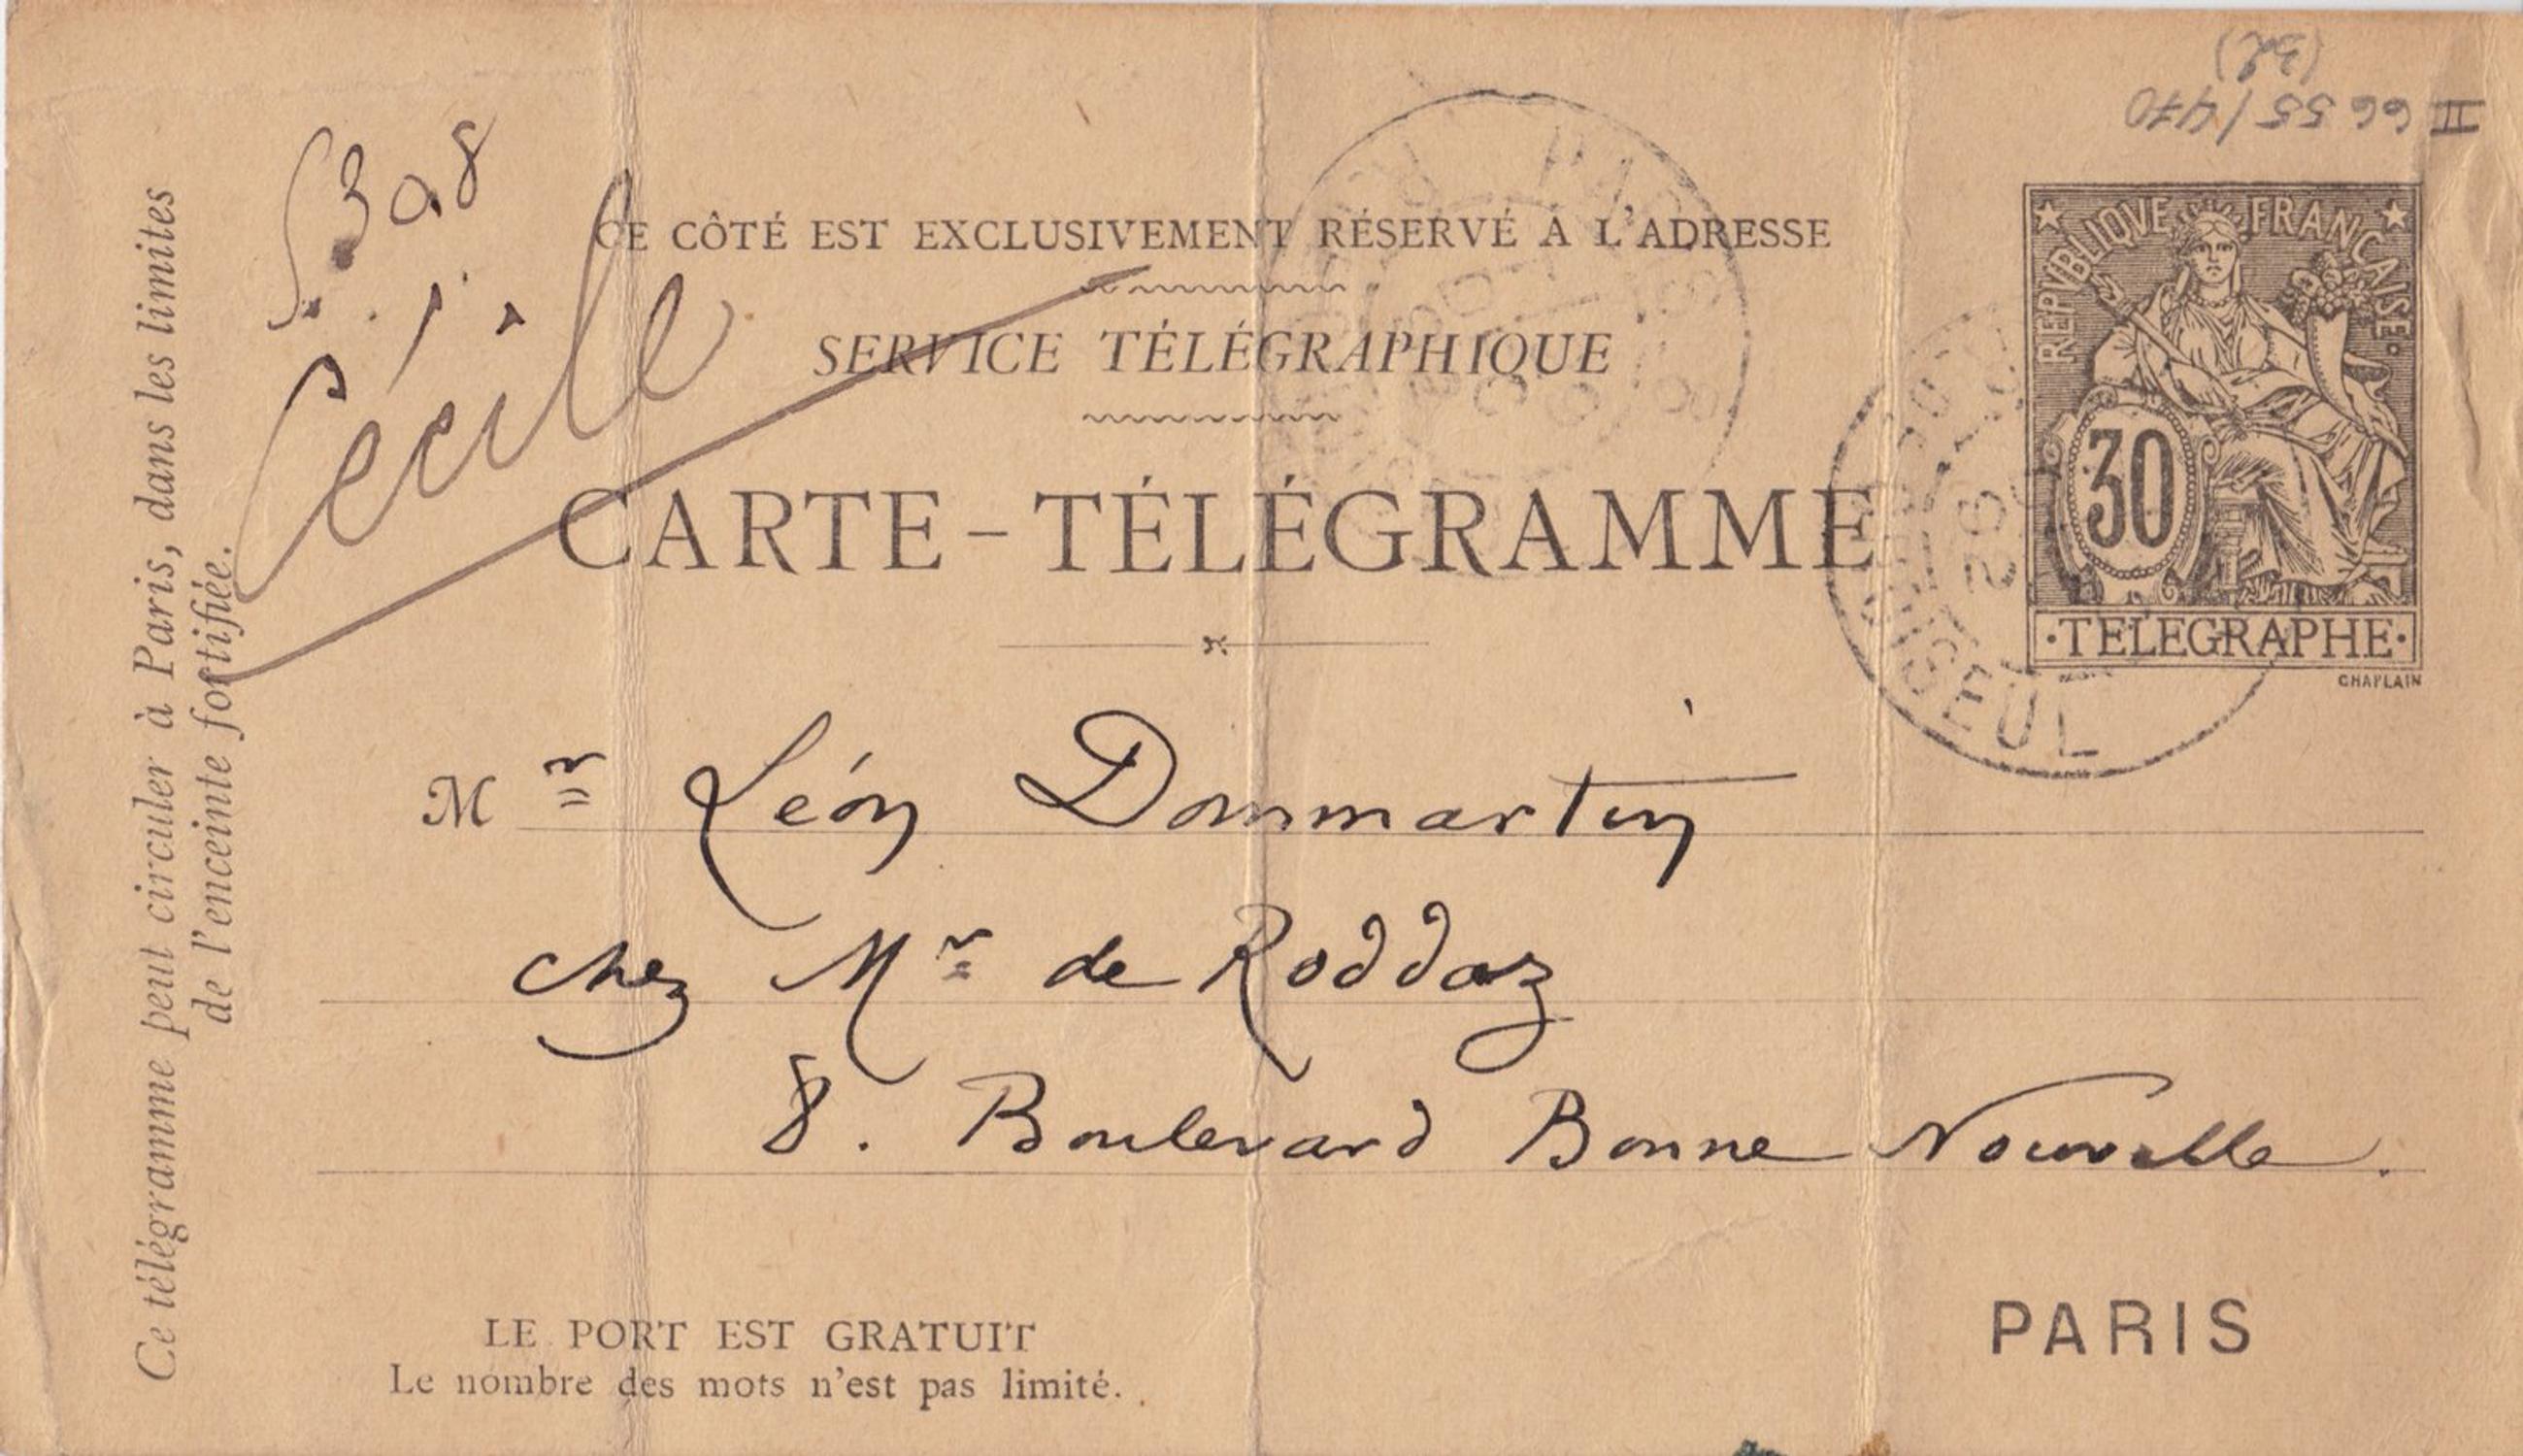 (32)
II 66 55/470
5398
Cécile
CE CÔTÉ EST EXCLUSIVEMENT RÉSERVÉ A L'ADRESSE
SERVICE TÉLÉGRAPHIQUE
CARTE-TÉLÉGRAMME
REPVBLIQVE FRANCAISE
30
·TELEGRAPHE·
CHAPLAIN
Ce télégramme peut circuler à Paris, dans les limites
de l'enceinte fortifiée.
Mr Léon Dommartin
chez Mr de Roddaz
8. Boulevard Bonne Nouvelle.
LE PORT EST GRATUIT
Le nombre des mots n'est pas limité.
PARIS